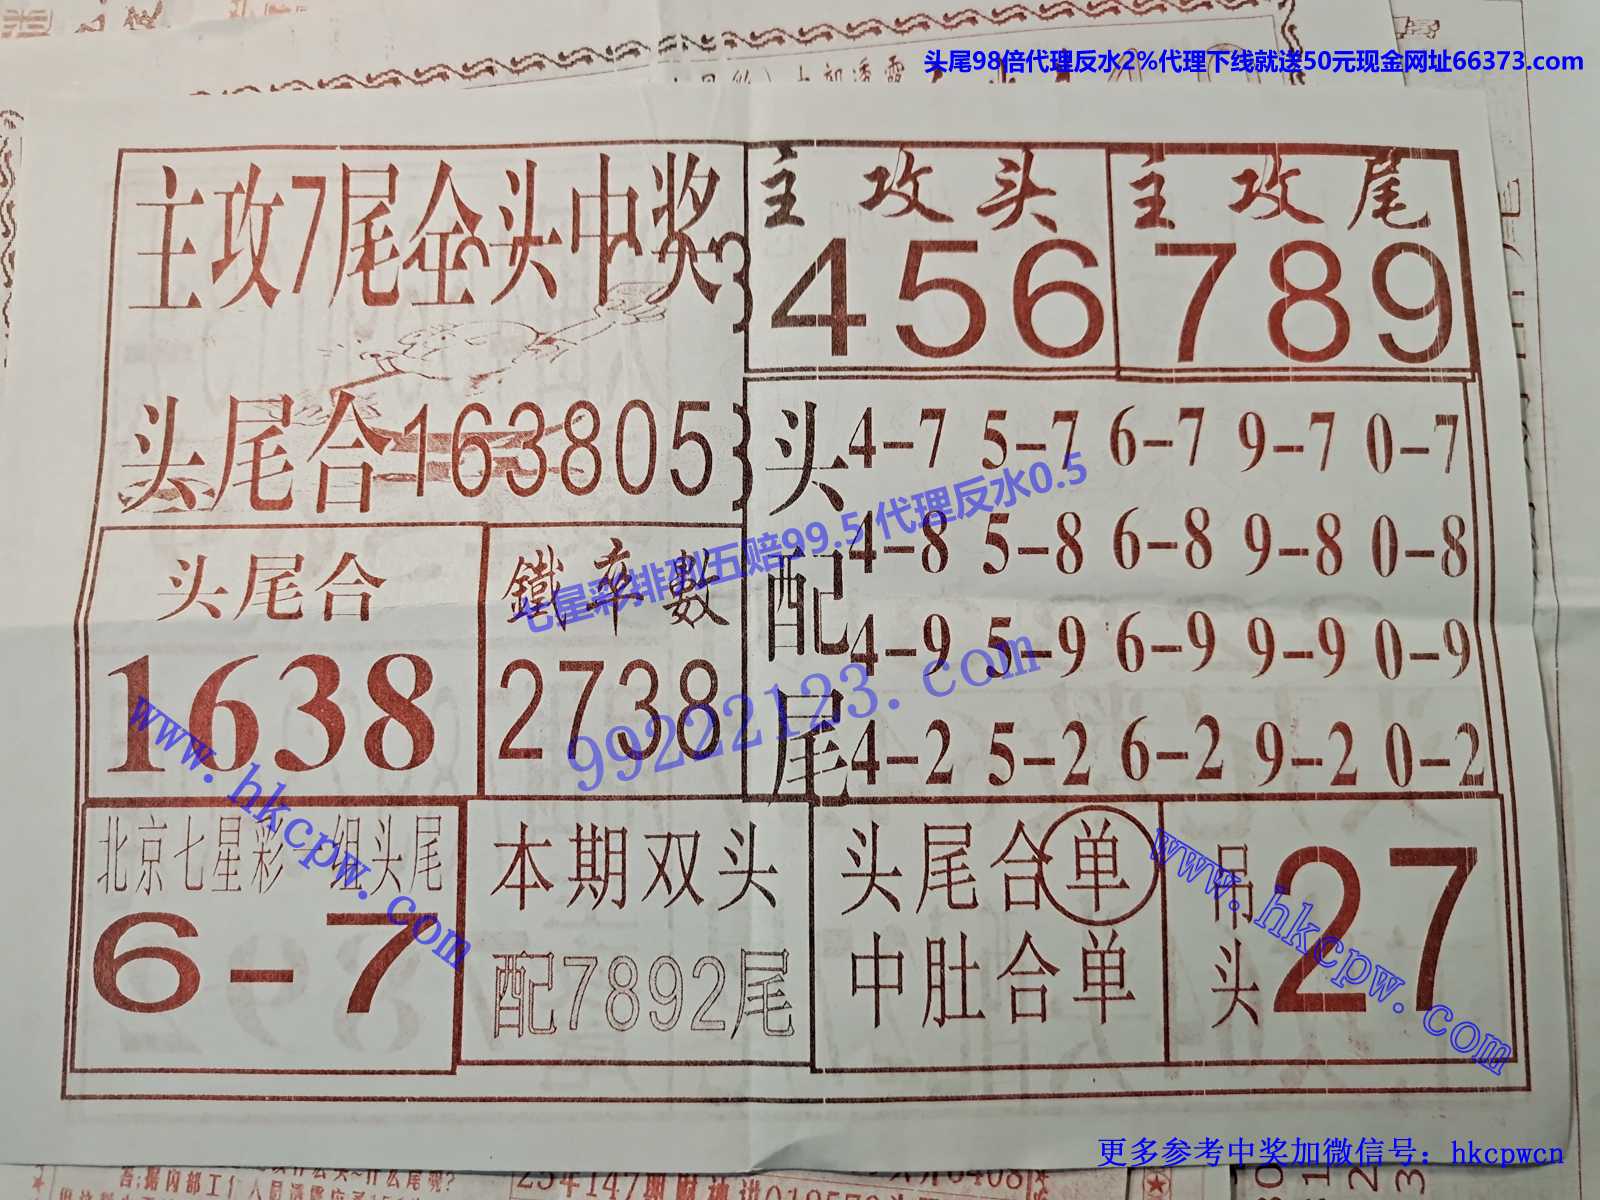 头尾98倍代理反水2%代理下线就送50元现金网址66373.com
主攻7尾全头中奖
主攻头
456
主攻尾
789
头尾合163805
头配尾
4-7 5-7 6-7 9-7 0-7
4-8 5-8 6-8 9-8 0-8
4-9 5-9 6-9 9-9 0-9
4-2 5-2 6-2 9-2 0-2
七星彩排列五赔99.5代理反水0.5
99222123.com
头尾合
1638
鐵率數
2738
www.hkcpw.com
北京七星彩一组头尾
6-7
本期双头
配7892尾
头尾合单
中肚合单
吊头
27
www.hkcpw.com
更多参考中奖加微信号：hkcpwcn